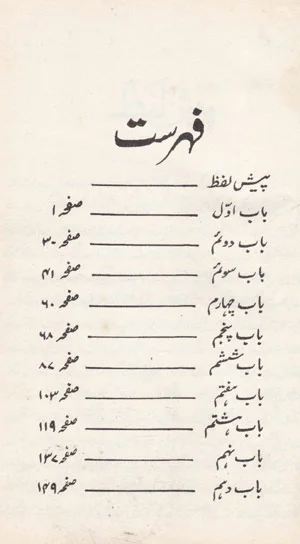 فہرست
پیش لفظ
باب اوّل ــــــــ صفحہ ۱
باب دوئم ــــــــ صفحہ ۳۰
باب سوئم ــــــــ صفحہ ۴۱
باب چہارم ــــــــ صفحہ ۶۰
باب پنجم ــــــــ صفحہ ۶۸
باب ششم ــــــــ صفحہ ۸۷
باب ہفتم ــــــــ صفحہ ۱۰۳
باب ہشتم ــــــــ صفحہ ۱۱۹
باب نہم ــــــــ صفحہ ۱۳۷
باب دہم ــــــــ صفحہ ۱۴۹